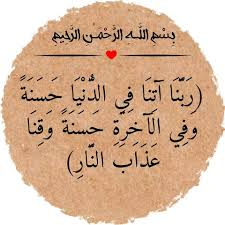 بِسْمِ اللَّهِ الرَّحْمَنِ الرَّحِيمِ
(رَبَّنَا آتِنَا فِي الدُّنْيَا حَسَنَةً
وَفِي الْآخِرَةِ حَسَنَةً وَقِنَا
عَذَابَ النَّارِ)